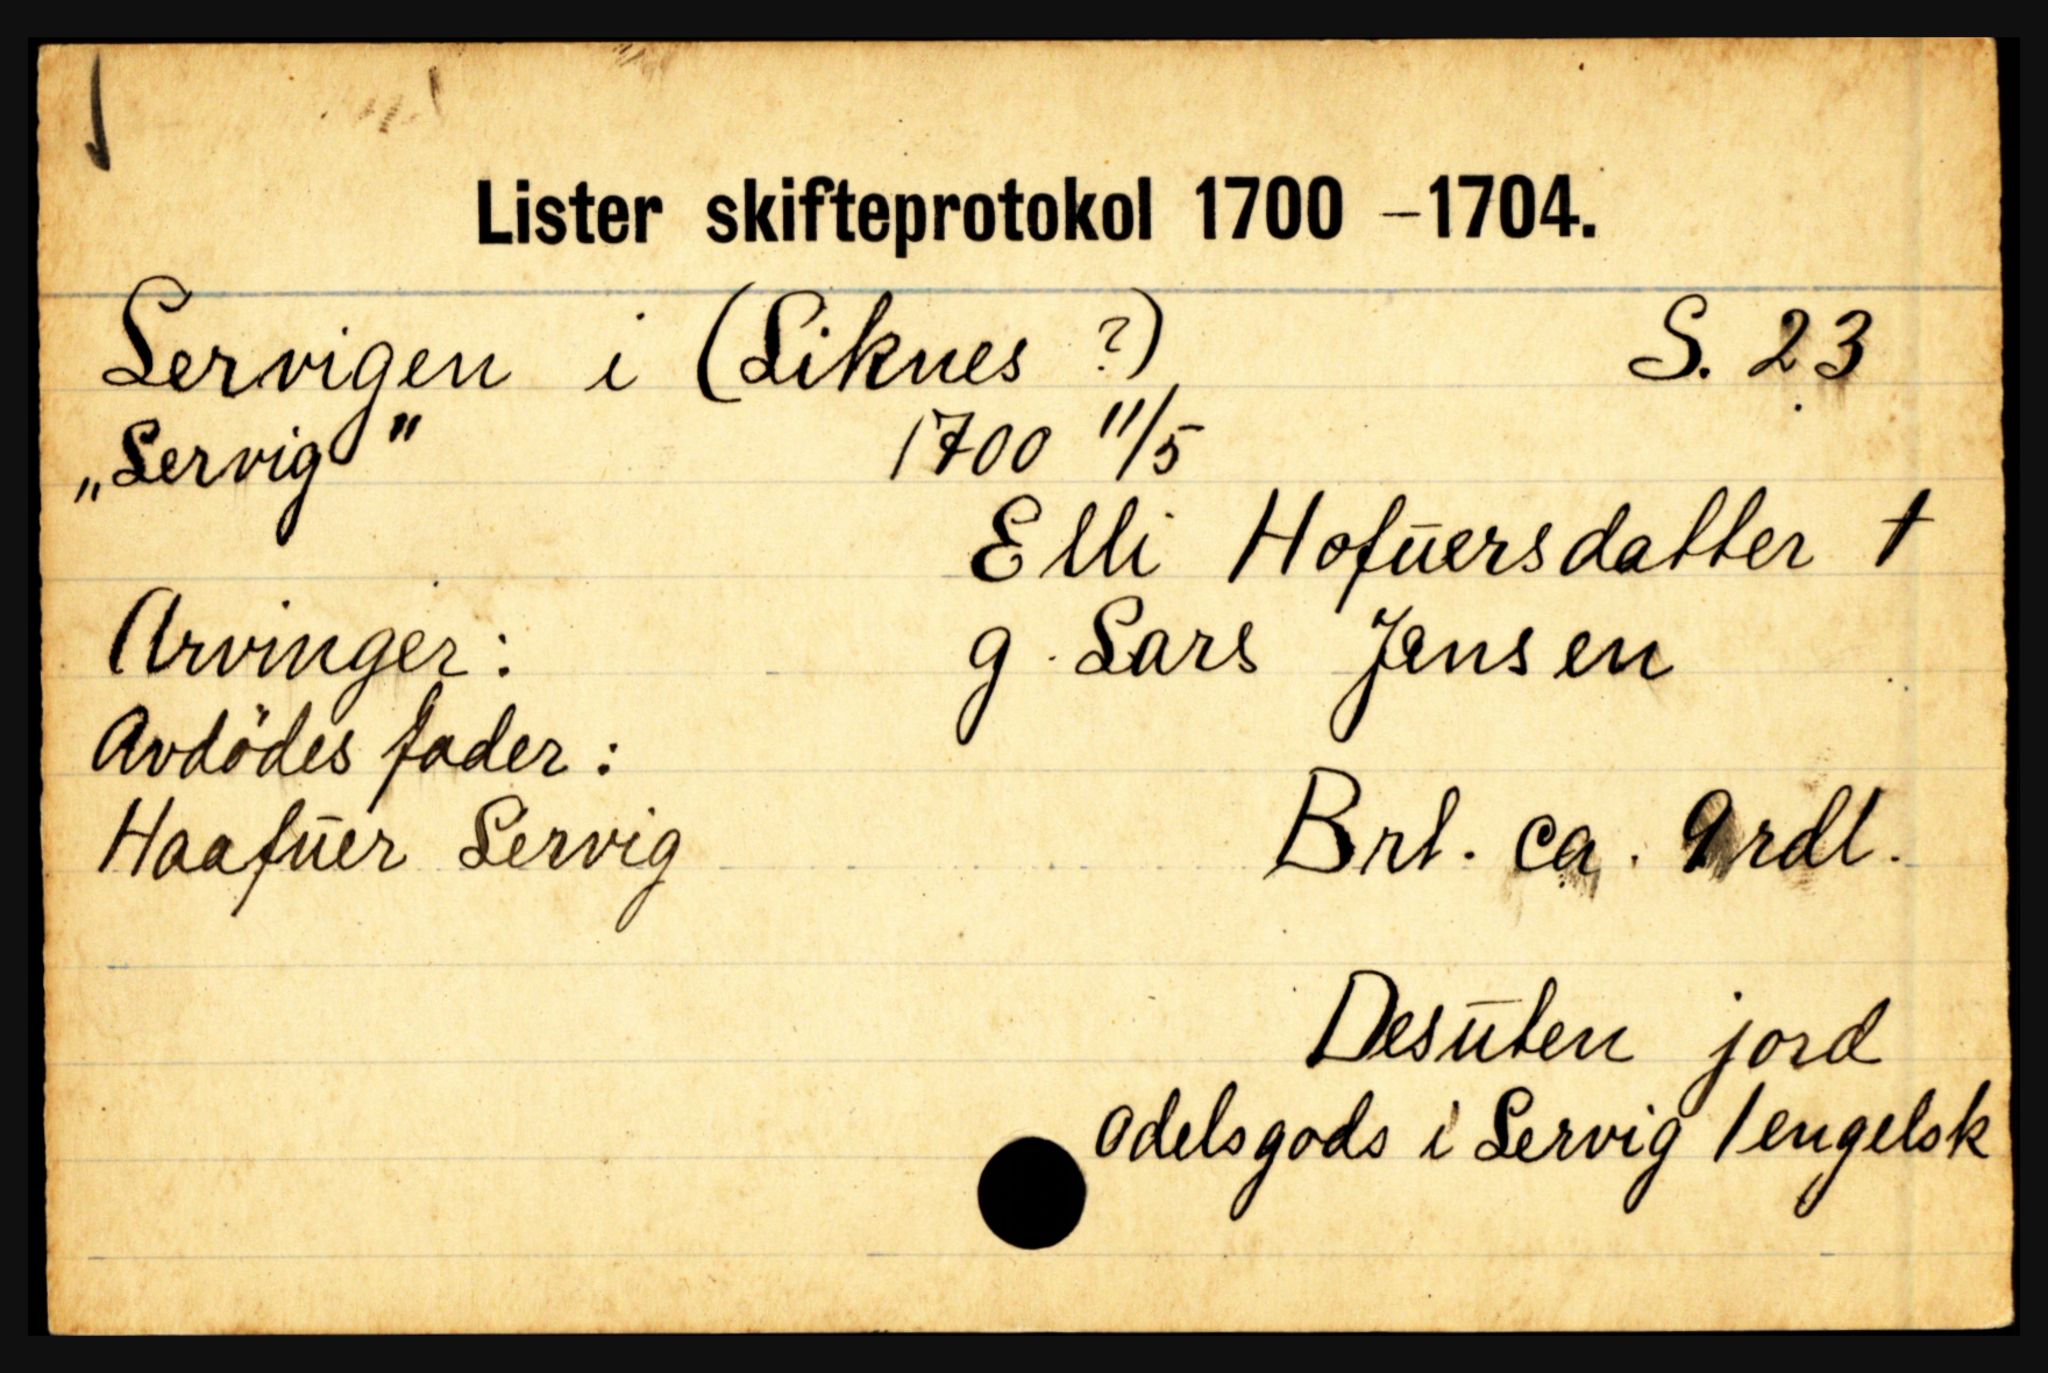 Lister skifteprotokol 1700 – 1704.
Servigen i (Liknes ?) S. 23
„Servig" 1700 11/5
Elli Hofuersdatter †
Arvinger: g. Lars Jensen
Avdödes fader:
Haafuer Servig Brl. ca. 9 rdl.
Desuten jord
odelsgods i Servig 1 engelsk